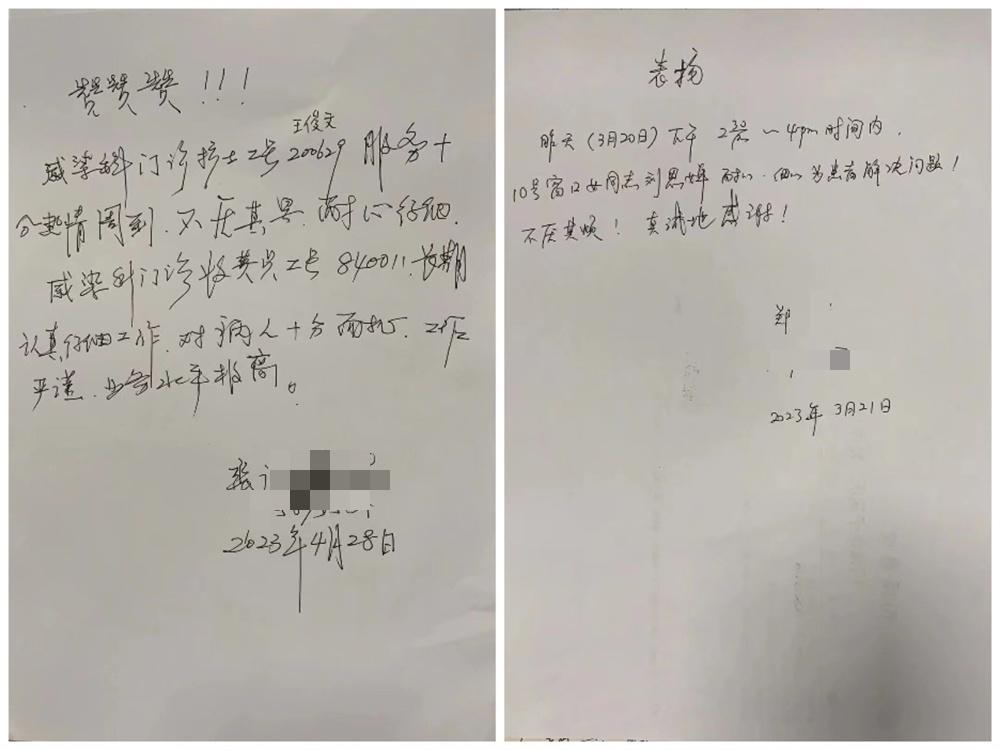 赞赞赞!!!
王俊文
感染科门诊护士工号200629服务十
分热情周到.不厌其累.耐心仔细.
感染科门诊收费员工号840011.长期
认真仔细工作.对病人十分耐心.工作
严谨.业务水平极高。
张
2023年4月28日
表扬
昨天(3月20日)下午2:30~4pm时间内.
10号窗口女同志刘思娣耐心.细心为患者解决问题!
不厌其烦!真诚地感谢!
郑
2023年3月21日